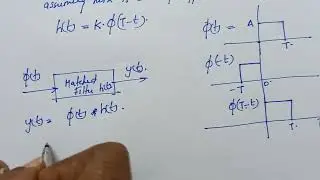 h(t) = K. ϕ(T-t).
ϕ(t)
Matched
Filter h(t)
y(t)
y(t) = ϕ(t) * h(t).
A
T.
ϕ(-t)
-T
0
ϕ(T-t)
T.